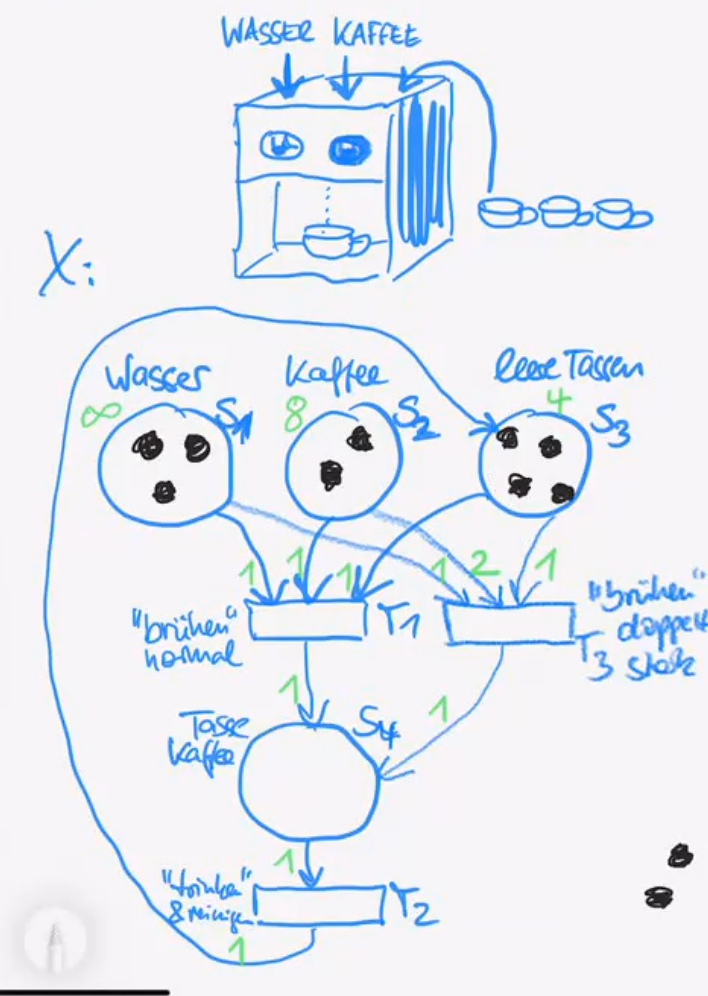 WASSER KAFFEE
X:
Wasser Kaffee leere Tassen
∞ S1 8 S2 4 S3
1 1 1 1 2 1
"brühen" normal T1
"brühen" doppelt stark T3
1 1
Tasse Kaffee S4
1
"trinken" & reinigen T2
1